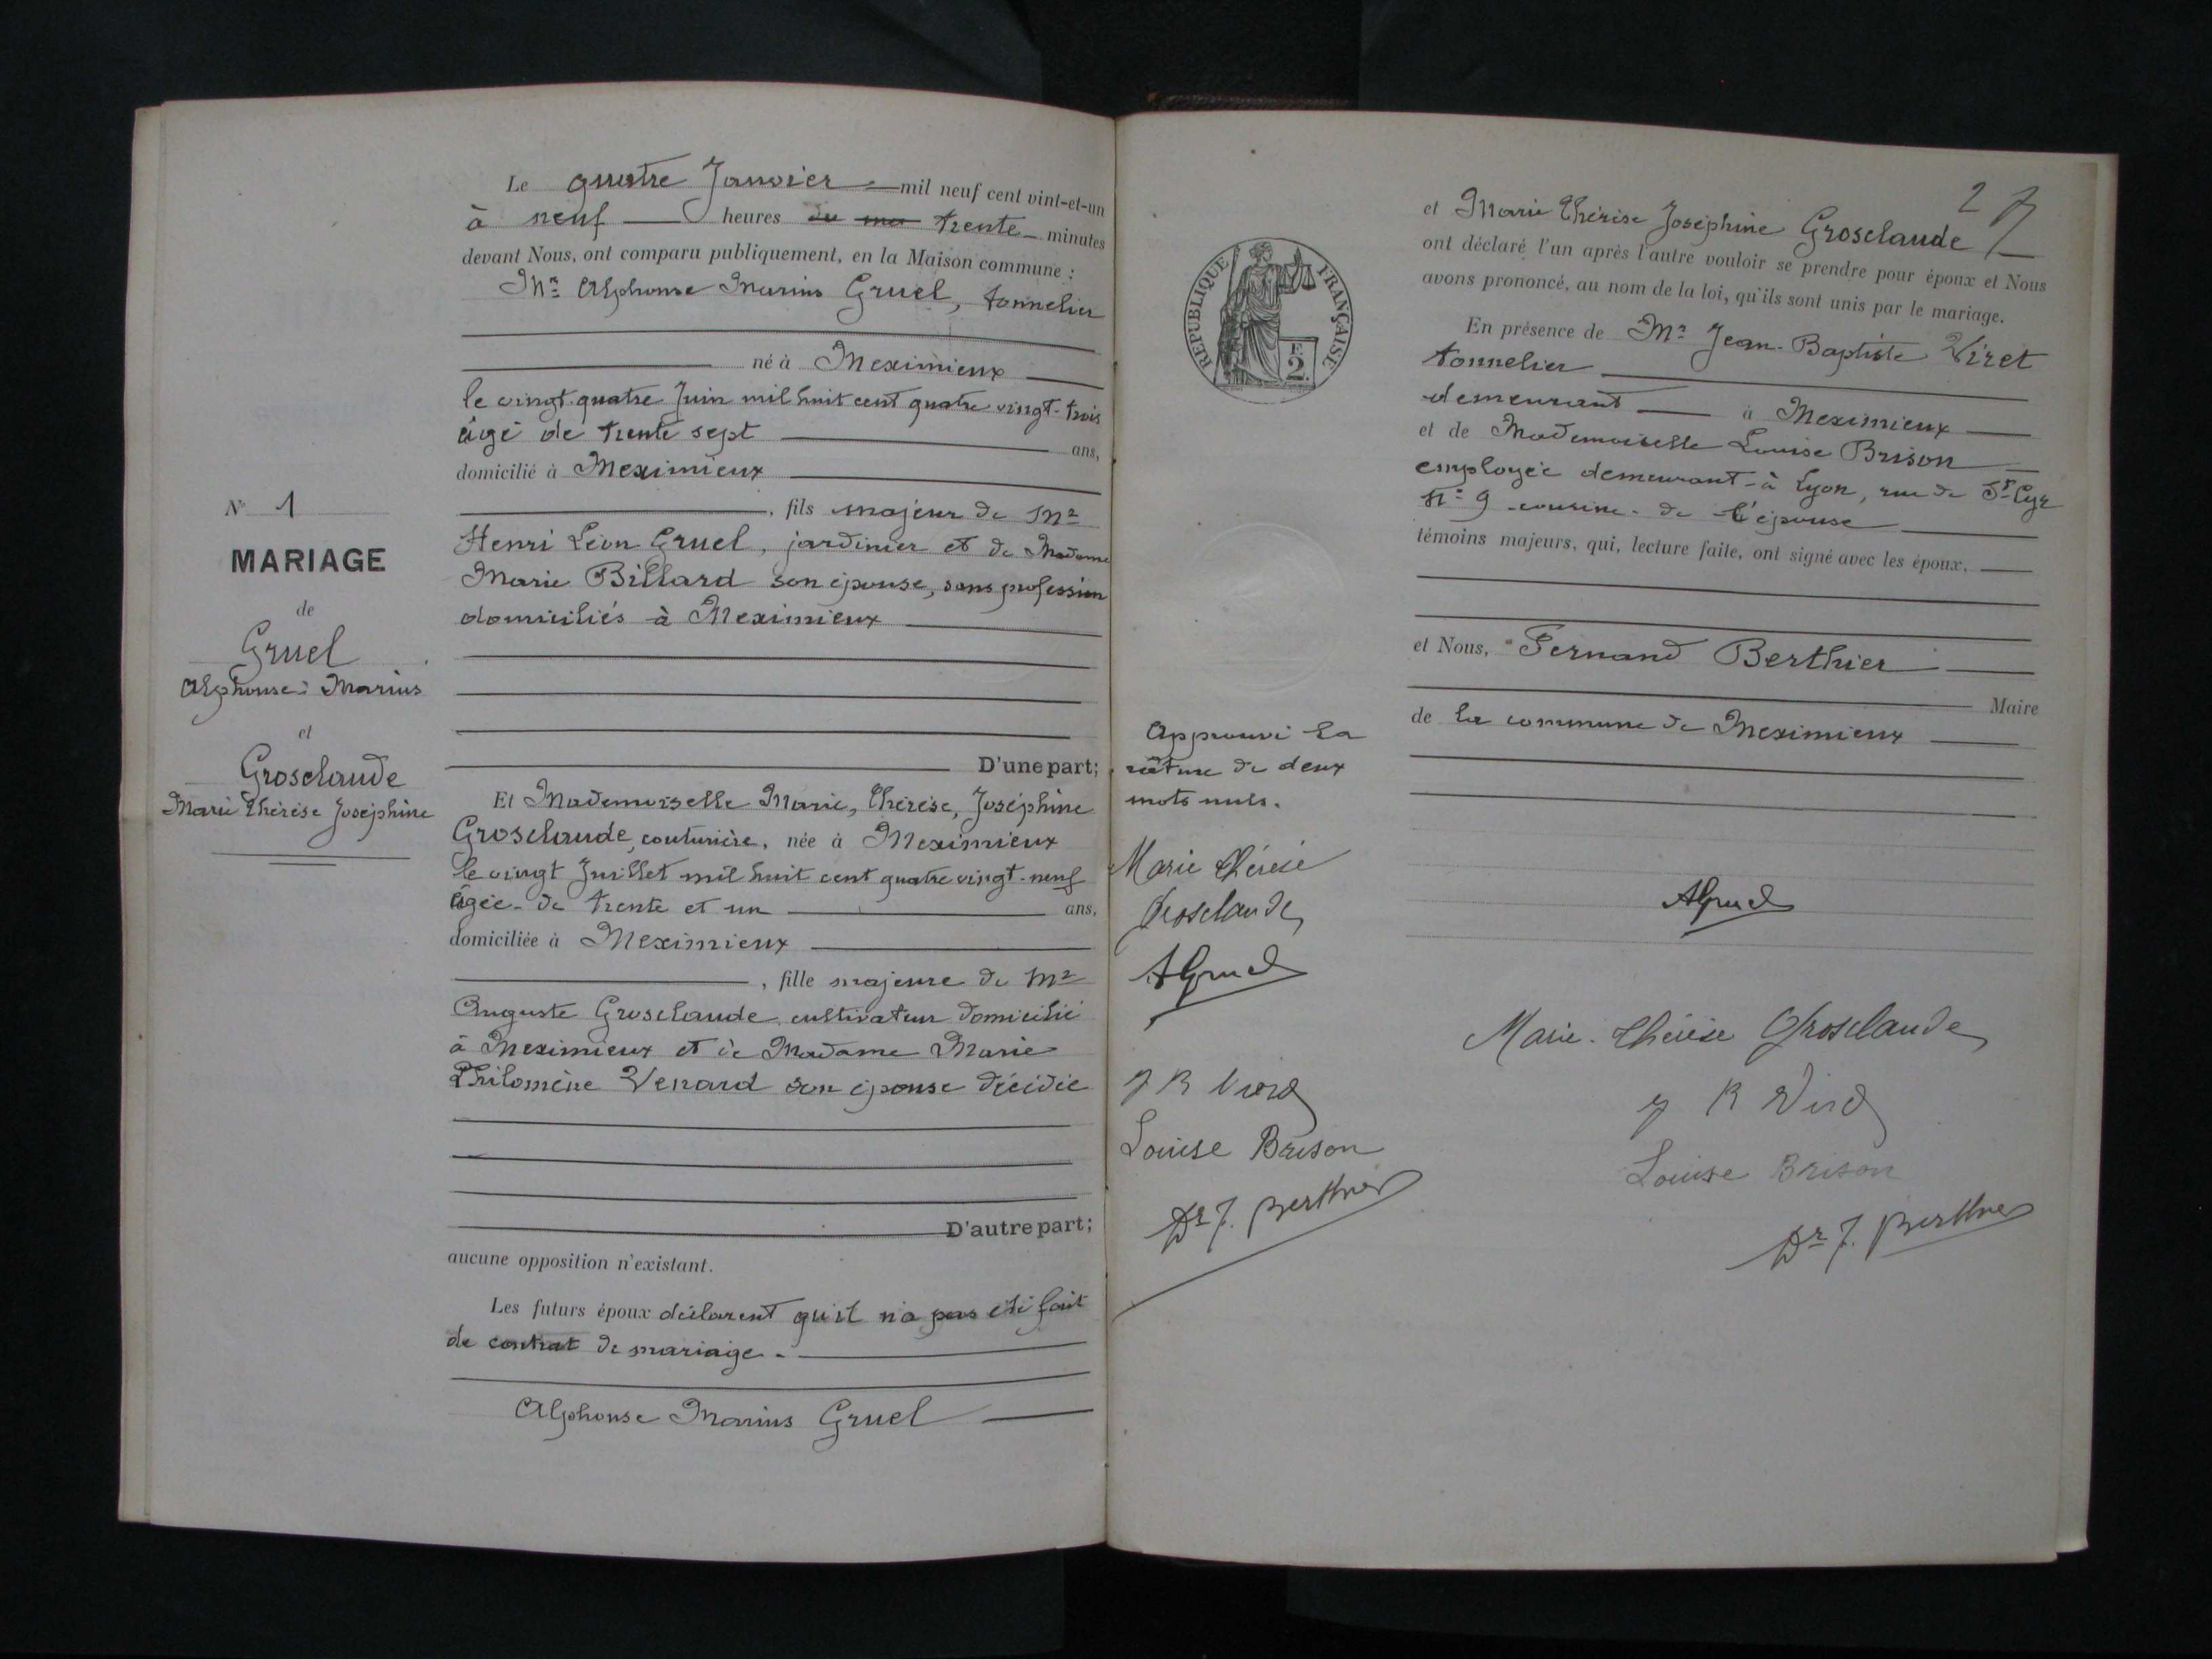 N° 1
MARIAGE
de
Gruel
Alphonse Marius
et
Grosclaude
Marie Thérèse Joséphine
Le quatre Janvier mil neuf cent vint-et-un
à neuf heures du ma trente minutes
devant Nous, ont comparu publiquement, en la Maison commune :
Mr Alphonse Marius Gruel, tonnelier
né à Meximieux
le vingt-quatre Juin mil huit cent quatre vingt-trois
âgé de trente sept ans,
domicilié à Meximieux
, fils majeur de Mr
Henri Léon Gruel, jardinier et de Madame
Marie Billard son épouse, sans profession
domiciliés à Meximieux
D'une part;
Et Mademoiselle Marie, Thérèse, Joséphine
Grosclaude, couturière, née à Meximieux
le vingt Juillet mil huit cent quatre vingt-neuf
âgée de trente et un ans,
domiciliée à Meximieux
, fille majeure de Mr
Auguste Grosclaude cultivateur domicilié
à Meximieux et de Madame Marie
Philomène Venard son épouse décédée
D'autre part;
aucune opposition n'existant.
Les futurs époux déclarent qu'il n'a pas été fait
de contrat de mariage.
Alphonse Marius Gruel
REPUBLIQUE FRANÇAISE
F.
2.
Approuvé la
rature de deux
mots nuls.
Marie Thérèse
Grosclaude
AGruel
J B Viret
Louise Brison
Dr F. Berthier
2
et Marie Thérèse Joséphine Grosclaude
ont déclaré l'un après l'autre vouloir se prendre pour époux et Nous
avons prononcé, au nom de la loi, qu'ils sont unis par le mariage.
En présence de Mr Jean-Baptiste Viret
tonnelier
demeurant à Meximieux
et de Mademoiselle Louise Brison
employée demeurant à Lyon, rue de St Cyr
n° 9 cousine de l'épouse
témoins majeurs, qui, lecture faite, ont signé avec les époux,
et Nous, Fernand Berthier
Maire
de la commune de Meximieux
AGruel
Marie-Thérèse Grosclaude
J B Viret
Louise Brison
Dr F. Berthier